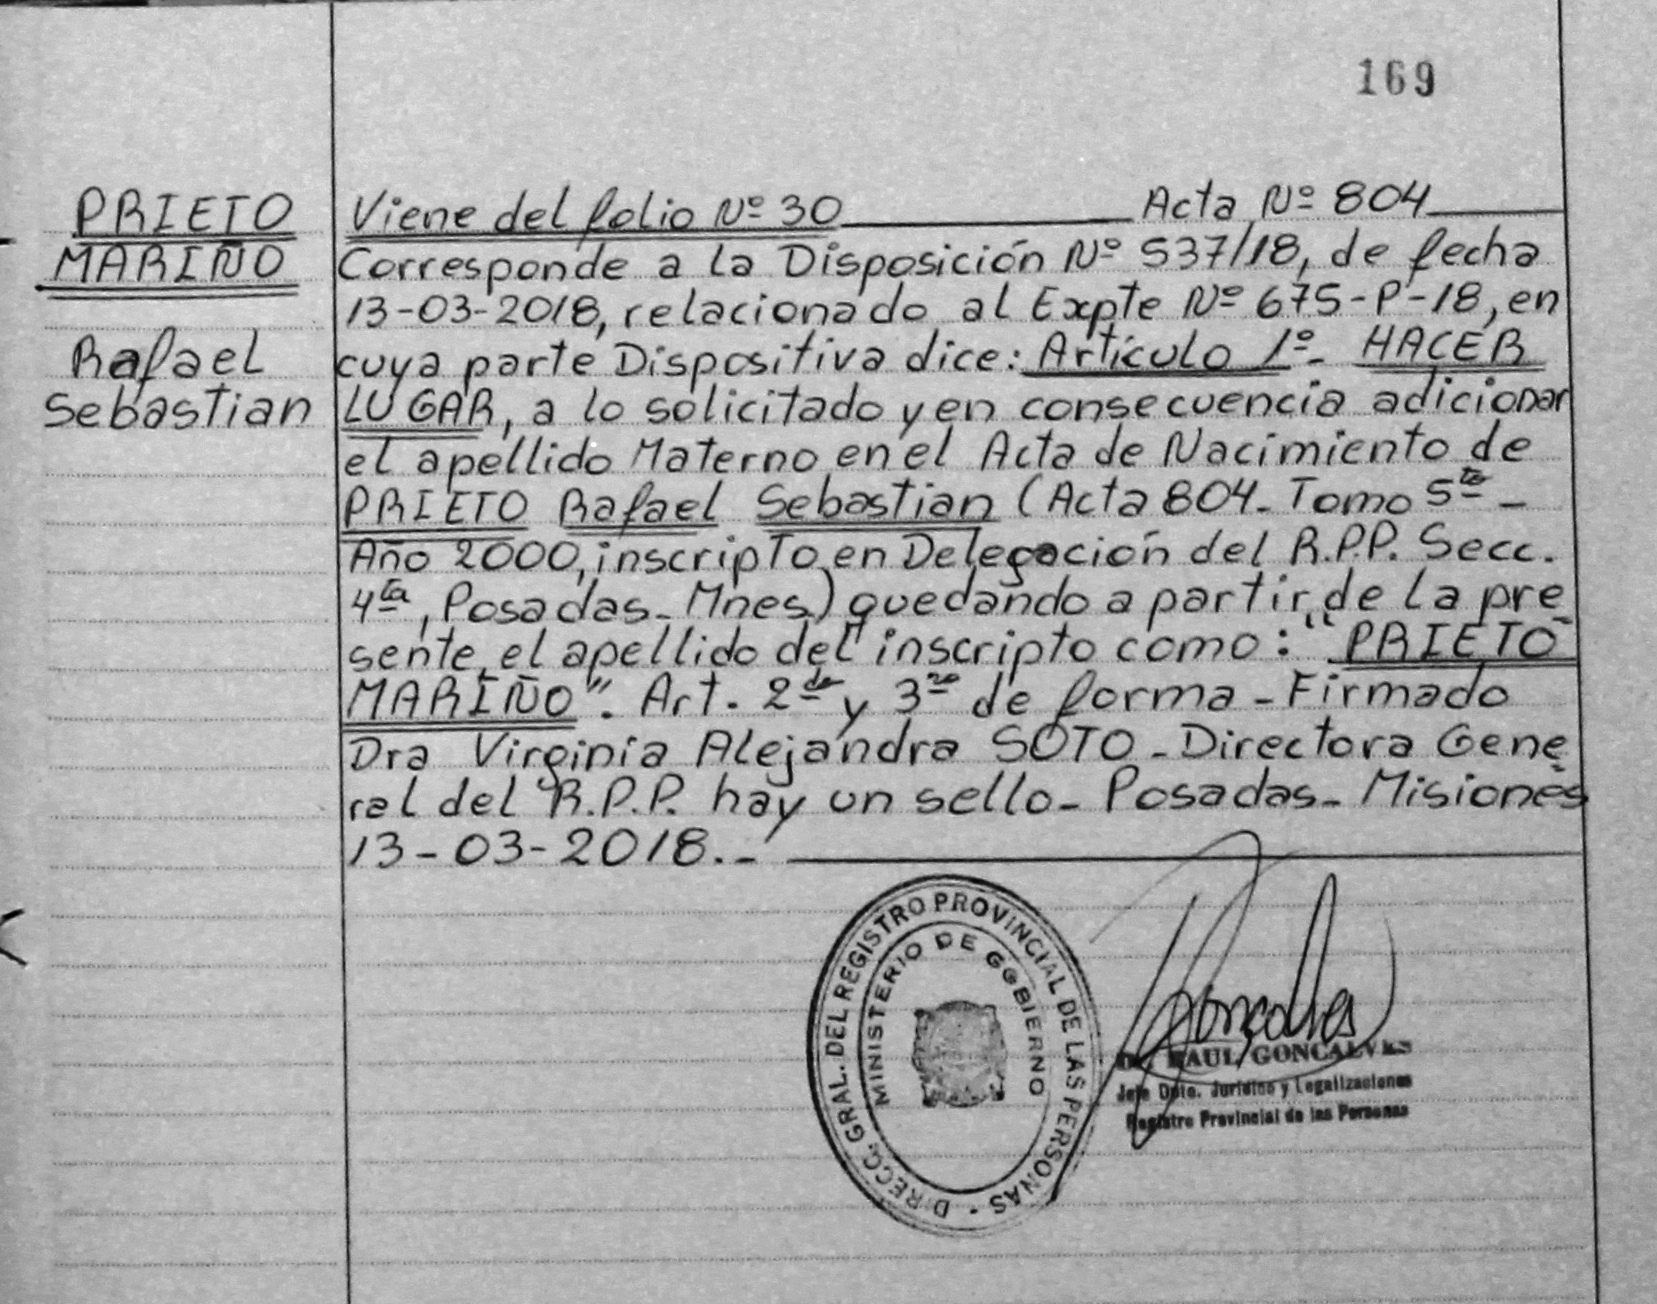 169
PRIETO
MARIÑO
Rafael
Sebastian
Viene del folio Nº 30 Acta Nº 804
Corresponde a la Disposición Nº 537/18, de fecha
13-03-2018, relacionado al Expte Nº 675-P-18, en
cuya parte Dispositiva dice: Artículo 1º- HACER
LUGAR, a lo solicitado y en consecuencia adicionar
el apellido Materno en el Acta de Nacimiento de
PRIETO Rafael Sebastian (Acta 804- Tomo 5to -
Año 2000, inscripto en Delegación del R.P.P. Secc.
4ta, Posadas- Mnes) quedando a partir de la pre
sente, el apellido del inscripto como: "PRIETO
MARIÑO". Art. 2do y 3ro de forma - Firmado
Dra Virginia Alejandra SOTO - Directora Gene
ral del R.P.P. hay un sello- Posadas- Misiones
13-03-2018.-
DIRECC. GRAL. DEL REGISTRO PROVINCIAL DE LAS PERSONAS
MINISTERIO DE GOBIERNO
RAUL GONCALVES
Jefe Dpto. Jurídico y Legalizaciones
Registro Provincial de las Personas